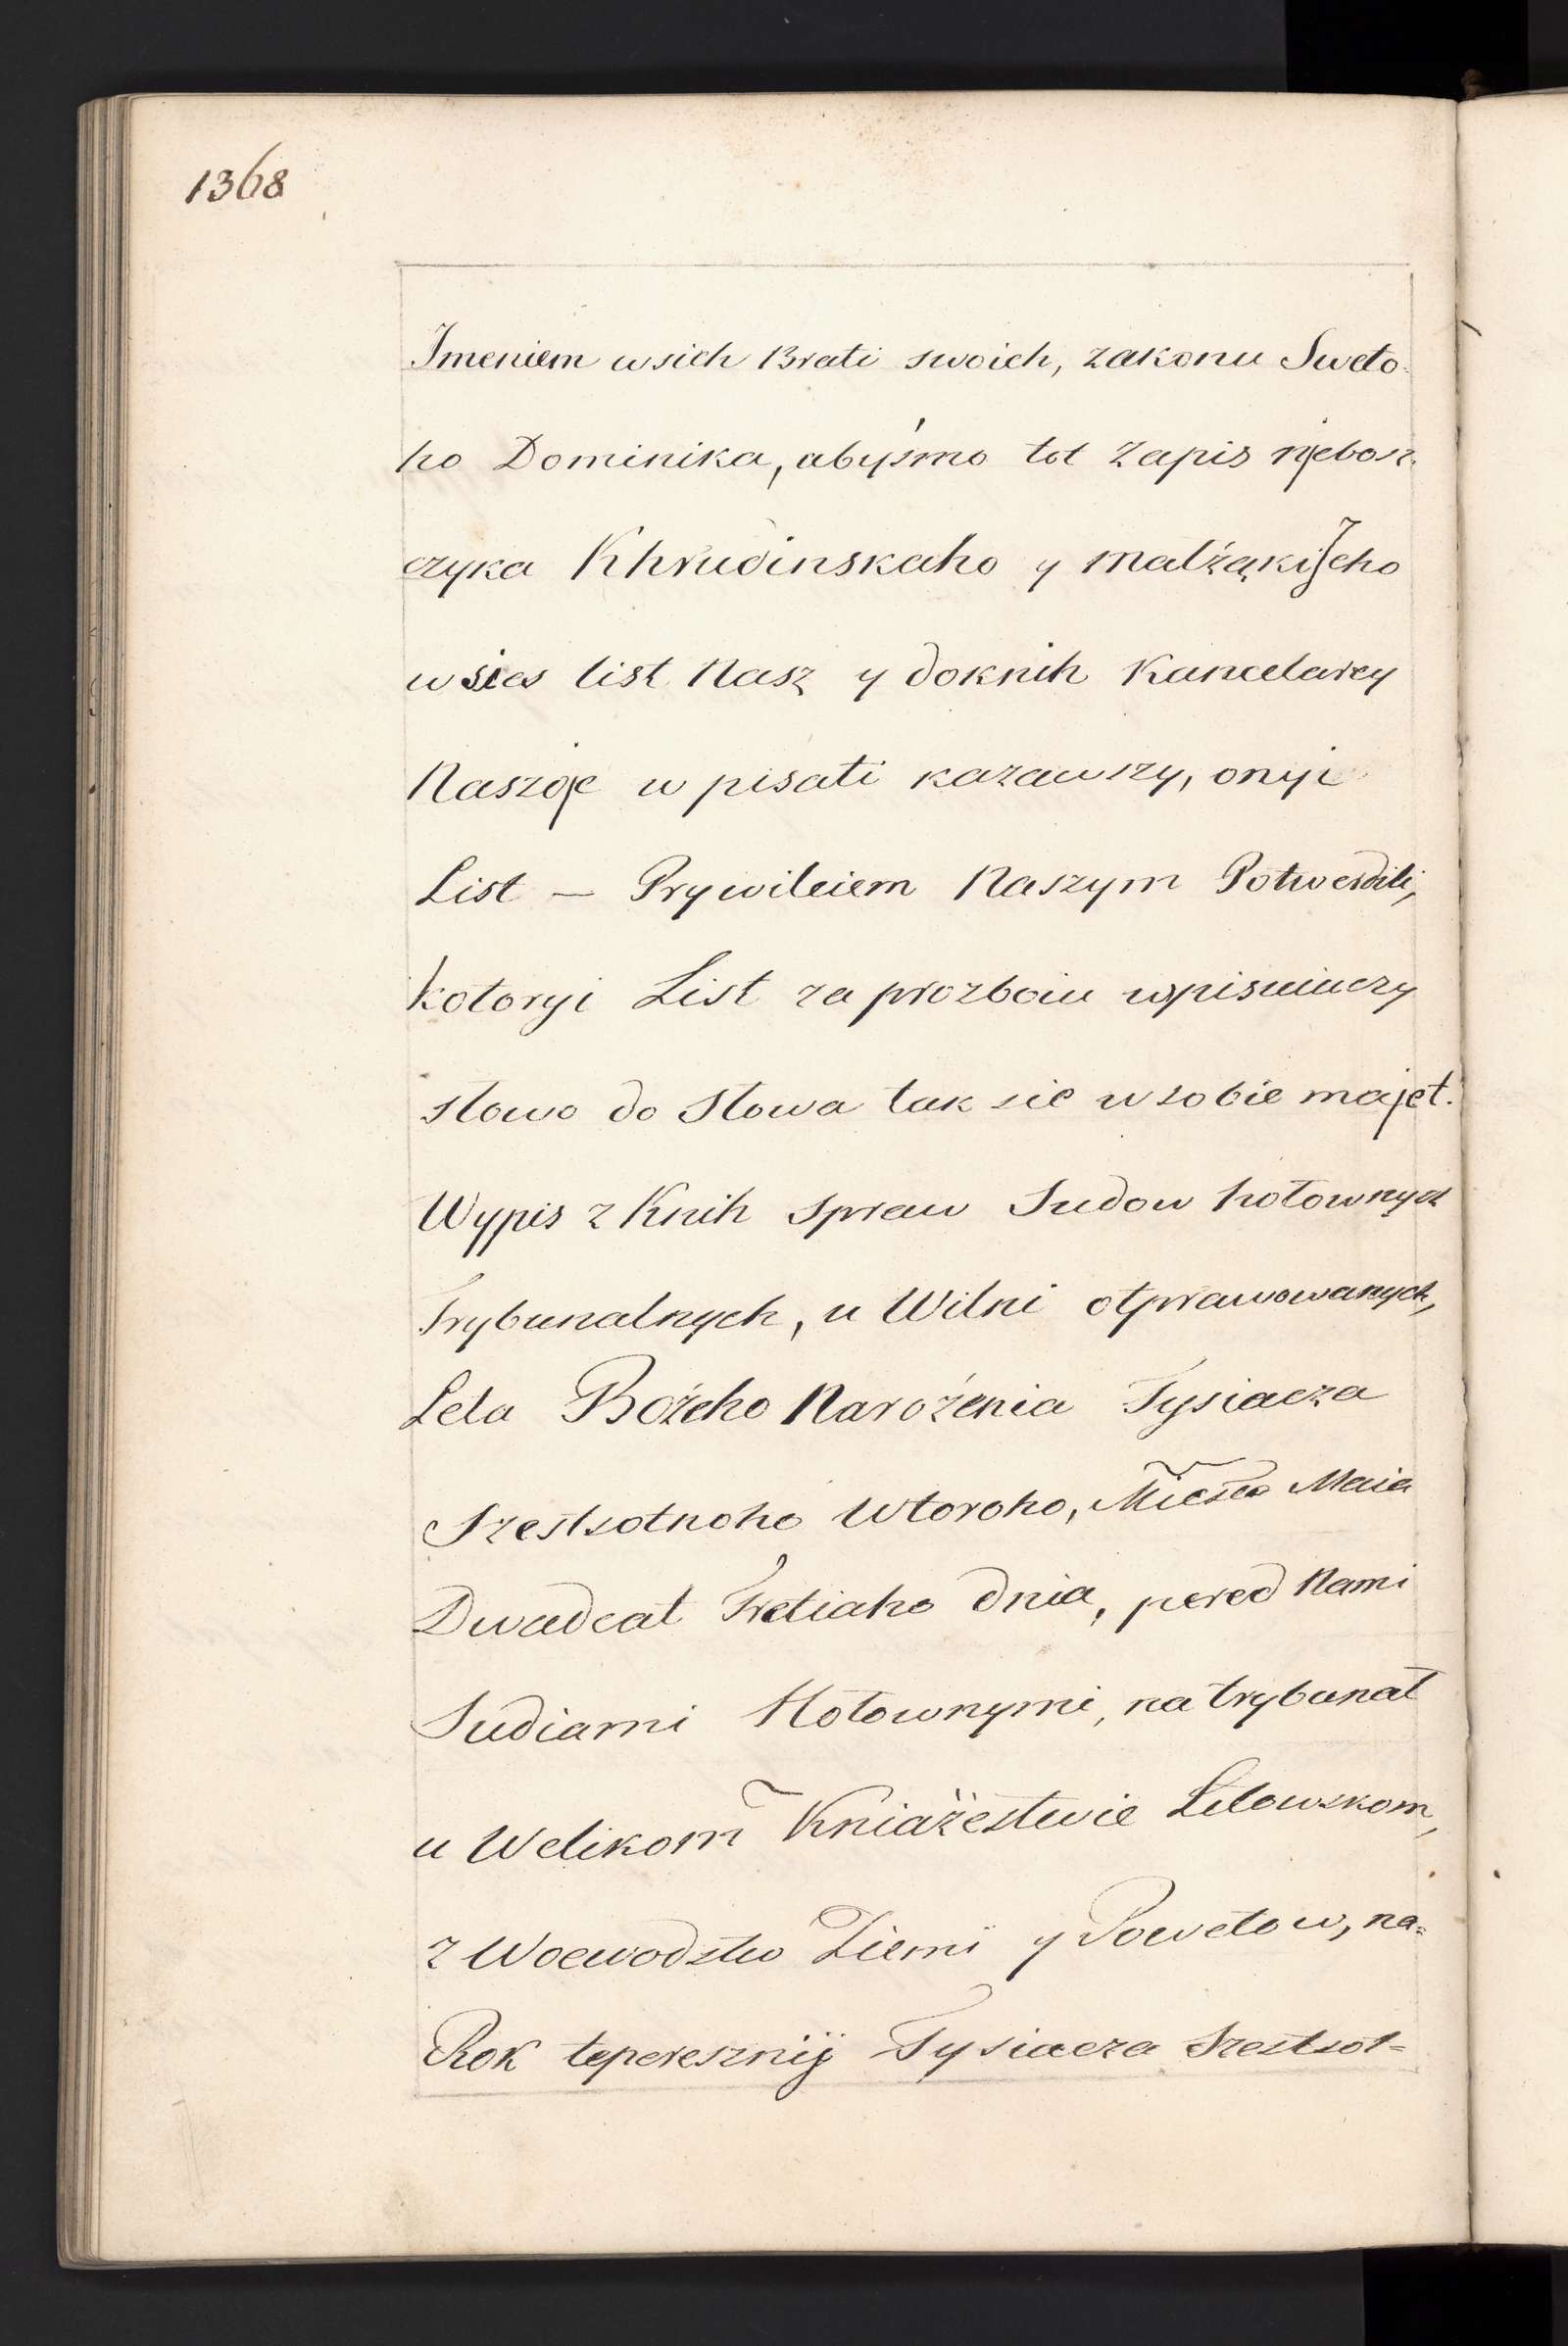 1368
Imeniem wsich Brati swoich, zakonu Sweto-
ho Dominika, abyśmo tot zapis njebosz-
czyka Khrudinskaho y malżąki Jeho
w sies list Nasz y doknih Kancelarey
Naszoje w pisati kazawszy, onyi
List — Prywileiem Naszym Potwerdili,
kotoryi List za prozboiu wpisuiuczy
słowo do słowa tak sie w sobie majet.
Wypis z Knih spraw Sudow hołownych
Trybunalnych, u Wilni otprawowanych,
Leta Bożeho Narożenia Tysiacza
Szestsotnoho Wtoroho, Miesca Maia
Dwadcat Tretiaho dnia, pered Nami
Sudiami Hołownymi, na trybunał
u Welikom Kniażestwie Litowskom,
z Woewodztw Ziemi y Powetow, na=
Rok teperesznij Tysiacza Szestsot=